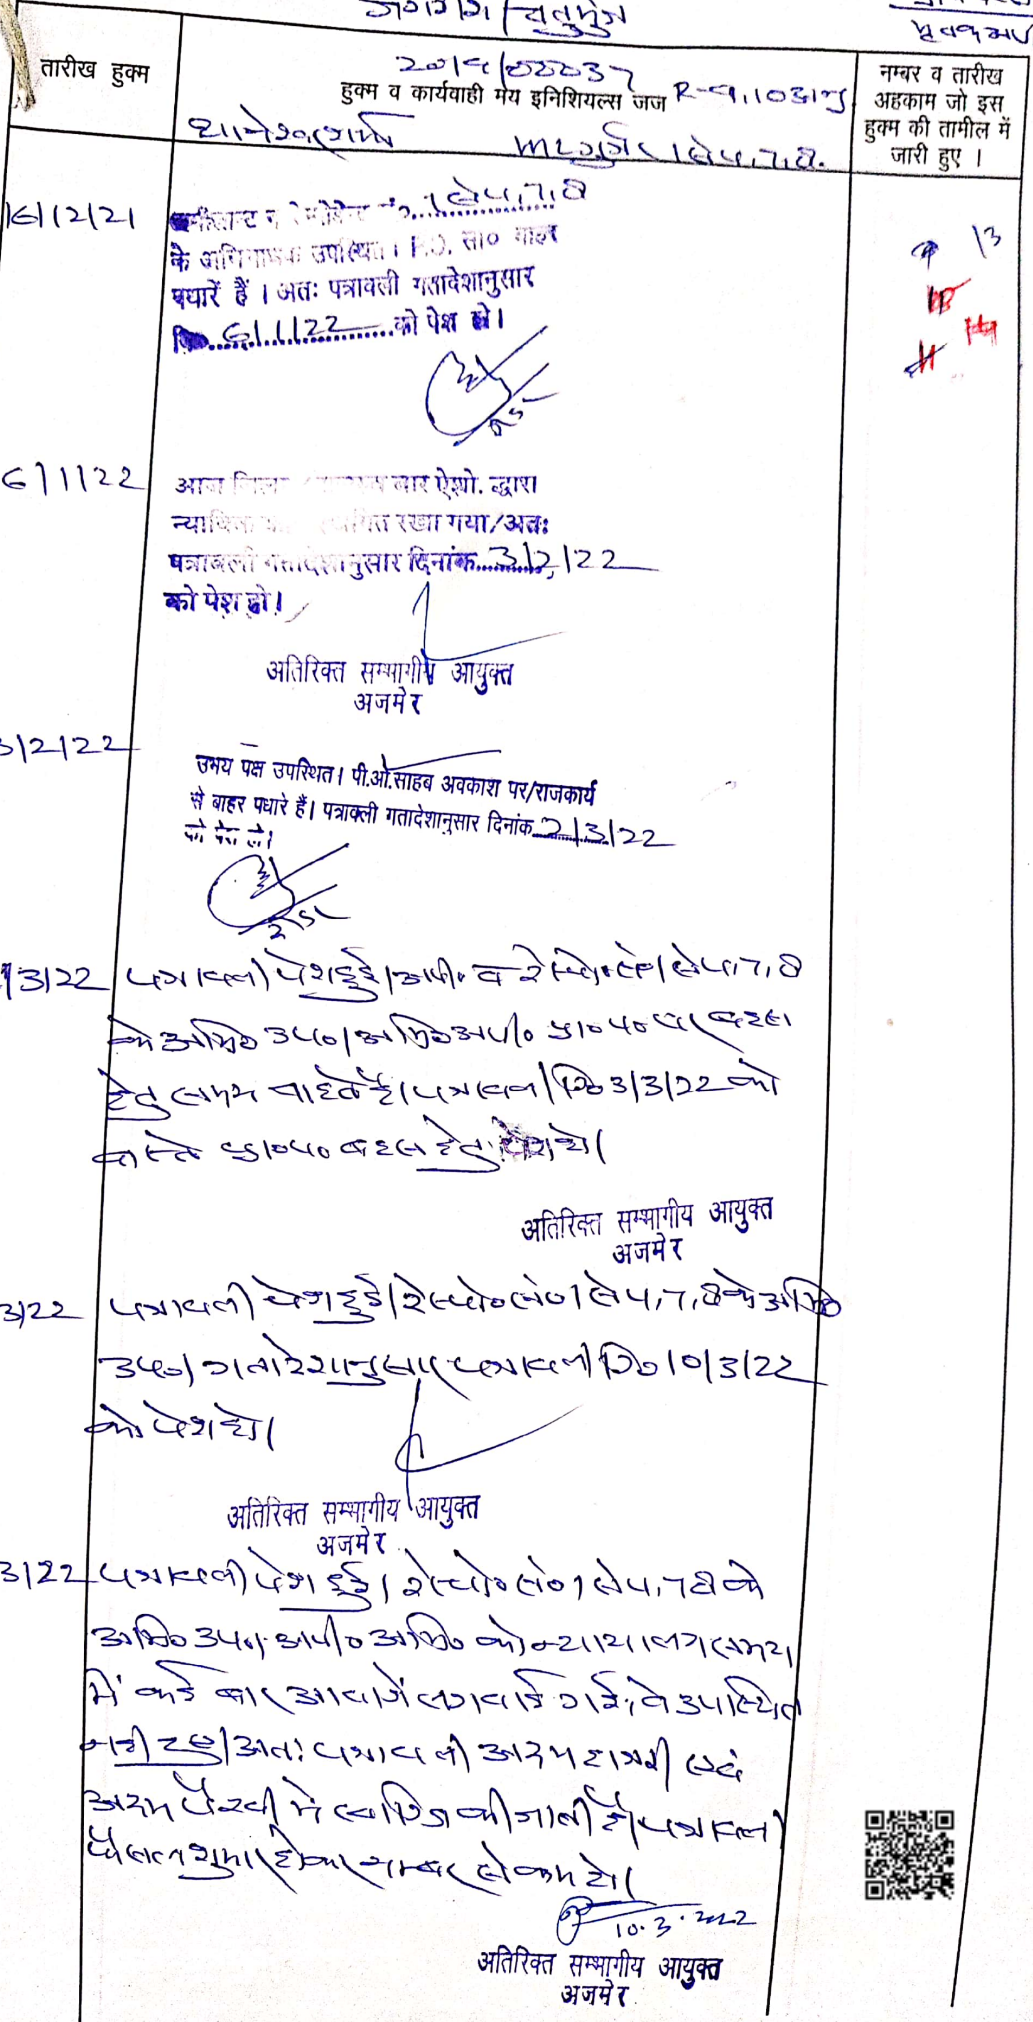 जगराम / चतुर्भुज
तारीख हुक्म
2019/00037
हुक्म व कार्यवाही मय इनिशियल्स जज
नम्बर व तारीख
अहकाम जो इस
हुक्म की तामील में
जारी हुए ।
16/12/21
1 से 4, 7, 8
के अभिभाषक उपस्थित । P.O. सा० बाहर
पधारें हैं । अतः पत्रावली गतादेशानुसार
दि. 6/1/22 को पेश हो ।
13
6/1/22
आज जिला बार ऐशो. द्वारा
रखा गया/अतः
पत्रावली गतादेशानुसार दिनांक 3/2/22
को पेश हो।
अतिरिक्त सम्भागीय आयुक्त
अजमेर
3/2/22
उभय पक्ष उपस्थित। पी.ओ.साहब अवकाश पर/राजकार्य
से बाहर पधारे हैं। पत्रावली गतादेशानुसार दिनांक 2/3/22
को पेश हो।
3/22 पत्रावली पेश हुई। अपी० व रेस्पो० सं० 1 से 4, 7, 8
के अभि० उप०। अभि० अपी० प्रा० प० पर बहस
हेतु समय चाहते है। पत्रावली दि० 3/3/22 को
वास्ते प्रा० प० बहस हेतु पेश हो।
अतिरिक्त सम्भागीय आयुक्त
अजमेर
3/22 पत्रावली पेश हुई। रेस्पो० सं० 1 से 4, 7, 8 के अभि०
उप०। गतादेशानुसार पत्रावली दि० 10/3/22
को पेश हो।
अतिरिक्त सम्भागीय आयुक्त
अजमेर
3/22 पत्रावली पेश हुई। रेस्पो० सं० 1 से 4, 7 8 के
अभि० उप०। अपी० अभि० को न्यायालय समय
में कई बार आवाजें लगवाई गई, वे उपस्थित
नही रहे। अतः पत्रावली अदम हाजरी एवं
अदम पैरवी मे खारिज की जाती है। पत्रावली
फैसल शुमार होकर नम्बर से कम हो।
10.3.2022
अतिरिक्त सम्भागीय आयुक्त
अजमेर